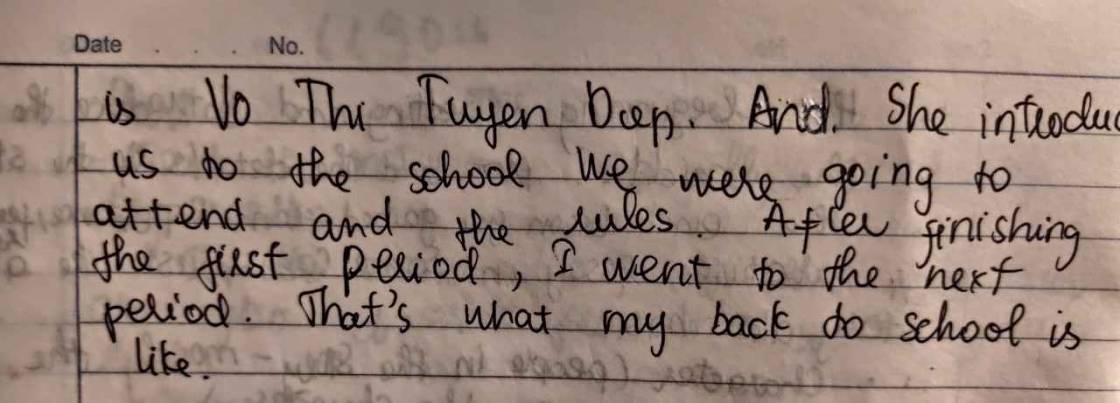 Date . . . No.
is Vo Thi Tuyen Diep. And. She introduc
us to the school we were going to
attend and the rules. After finishing
the first period, I went to the next
period. That's what my back to school is
like.